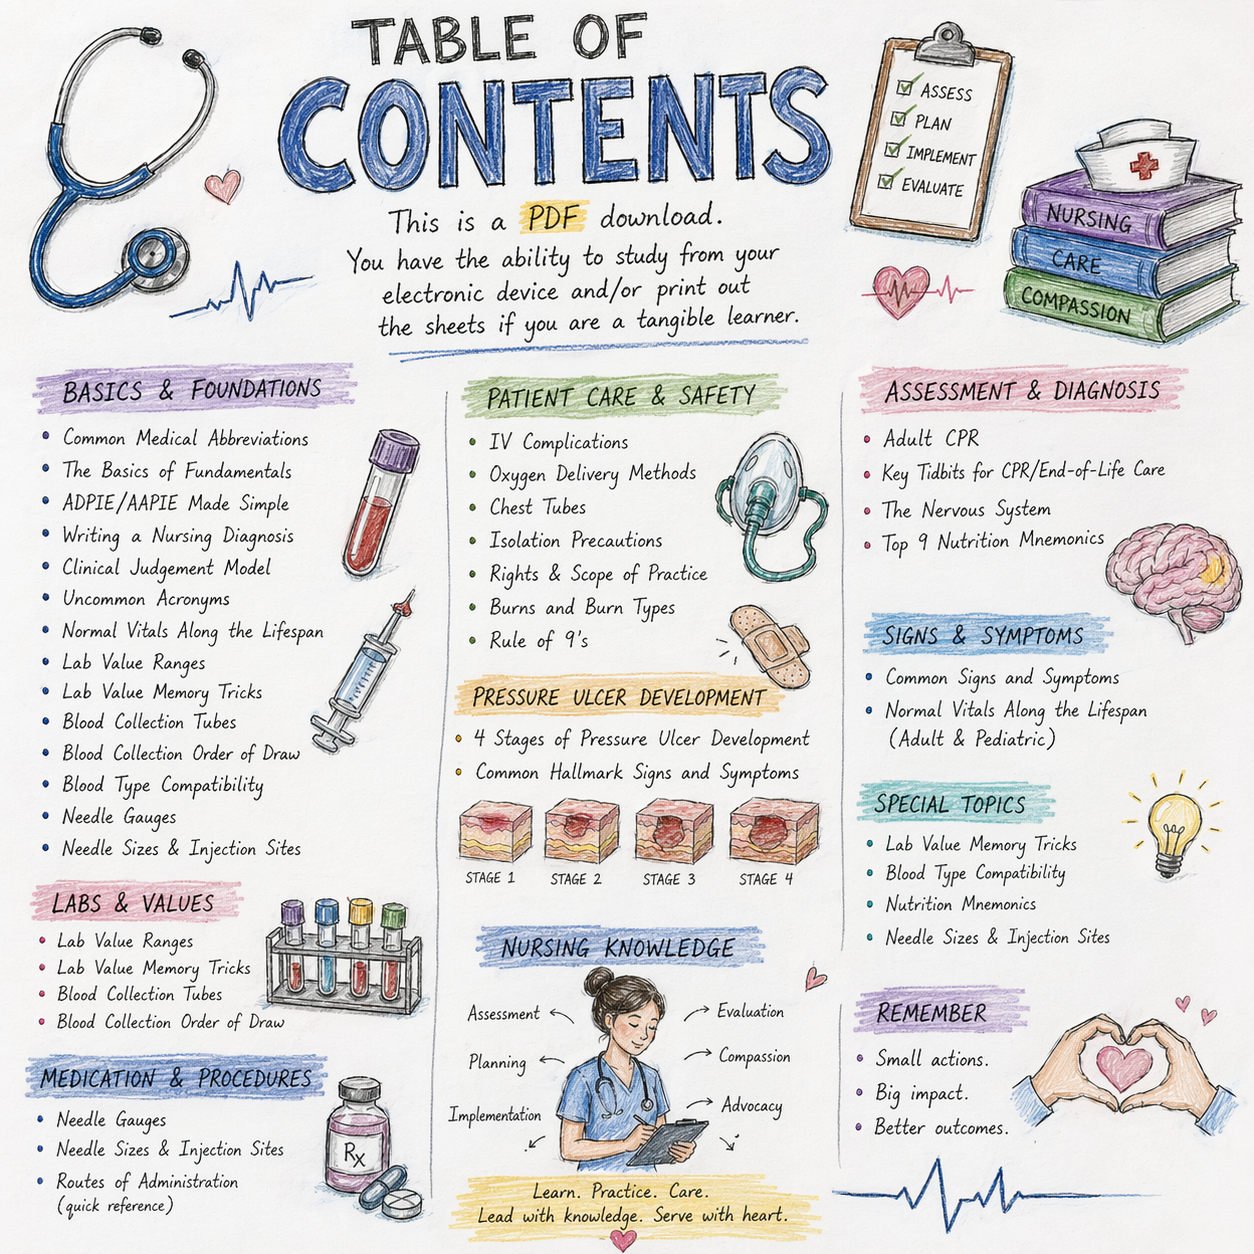 TABLE OF
CONTENTS
This is a PDF download.
You have the ability to study from your
electronic device and/or print out
the sheets if you are a tangible learner.
ASSESS
PLAN
IMPLEMENT
EVALUATE
NURSING
CARE
COMPASSION
BASICS & FOUNDATIONS
Common Medical Abbreviations
The Basics of Fundamentals
ADPIE/AAPIE Made Simple
Writing a Nursing Diagnosis
Clinical Judgement Model
Uncommon Acronyms
Normal Vitals Along the Lifespan
Lab Value Ranges
Lab Value Memory Tricks
Blood Collection Tubes
Blood Collection Order of Draw
Blood Type Compatibility
Needle Gauges
Needle Sizes & Injection Sites
LABS & VALUES
Lab Value Ranges
Lab Value Memory Tricks
Blood Collection Tubes
Blood Collection Order of Draw
MEDICATION & PROCEDURES
Needle Gauges
Needle Sizes & Injection Sites
Routes of Administration
(quick reference)
Rx
PATIENT CARE & SAFETY
IV Complications
Oxygen Delivery Methods
Chest Tubes
Isolation Precautions
Rights & Scope of Practice
Burns and Burn Types
Rule of 9's
PRESSURE ULCER DEVELOPMENT
4 Stages of Pressure Ulcer Development
Common Hallmark Signs and Symptoms
STAGE 1
STAGE 2
STAGE 3
STAGE 4
NURSING KNOWLEDGE
Assessment
Planning
Implementation
Evaluation
Compassion
Advocacy
Learn. Practice. Care.
Lead with knowledge. Serve with heart.
ASSESSMENT & DIAGNOSIS
Adult CPR
Key Tidbits for CPR/End-of-Life Care
The Nervous System
Top 9 Nutrition Mnemonics
SIGNS & SYMPTOMS
Common Signs and Symptoms
Normal Vitals Along the Lifespan
(Adult & Pediatric)
SPECIAL TOPICS
Lab Value Memory Tricks
Blood Type Compatibility
Nutrition Mnemonics
Needle Sizes & Injection Sites
REMEMBER
Small actions.
Big impact.
Better outcomes.